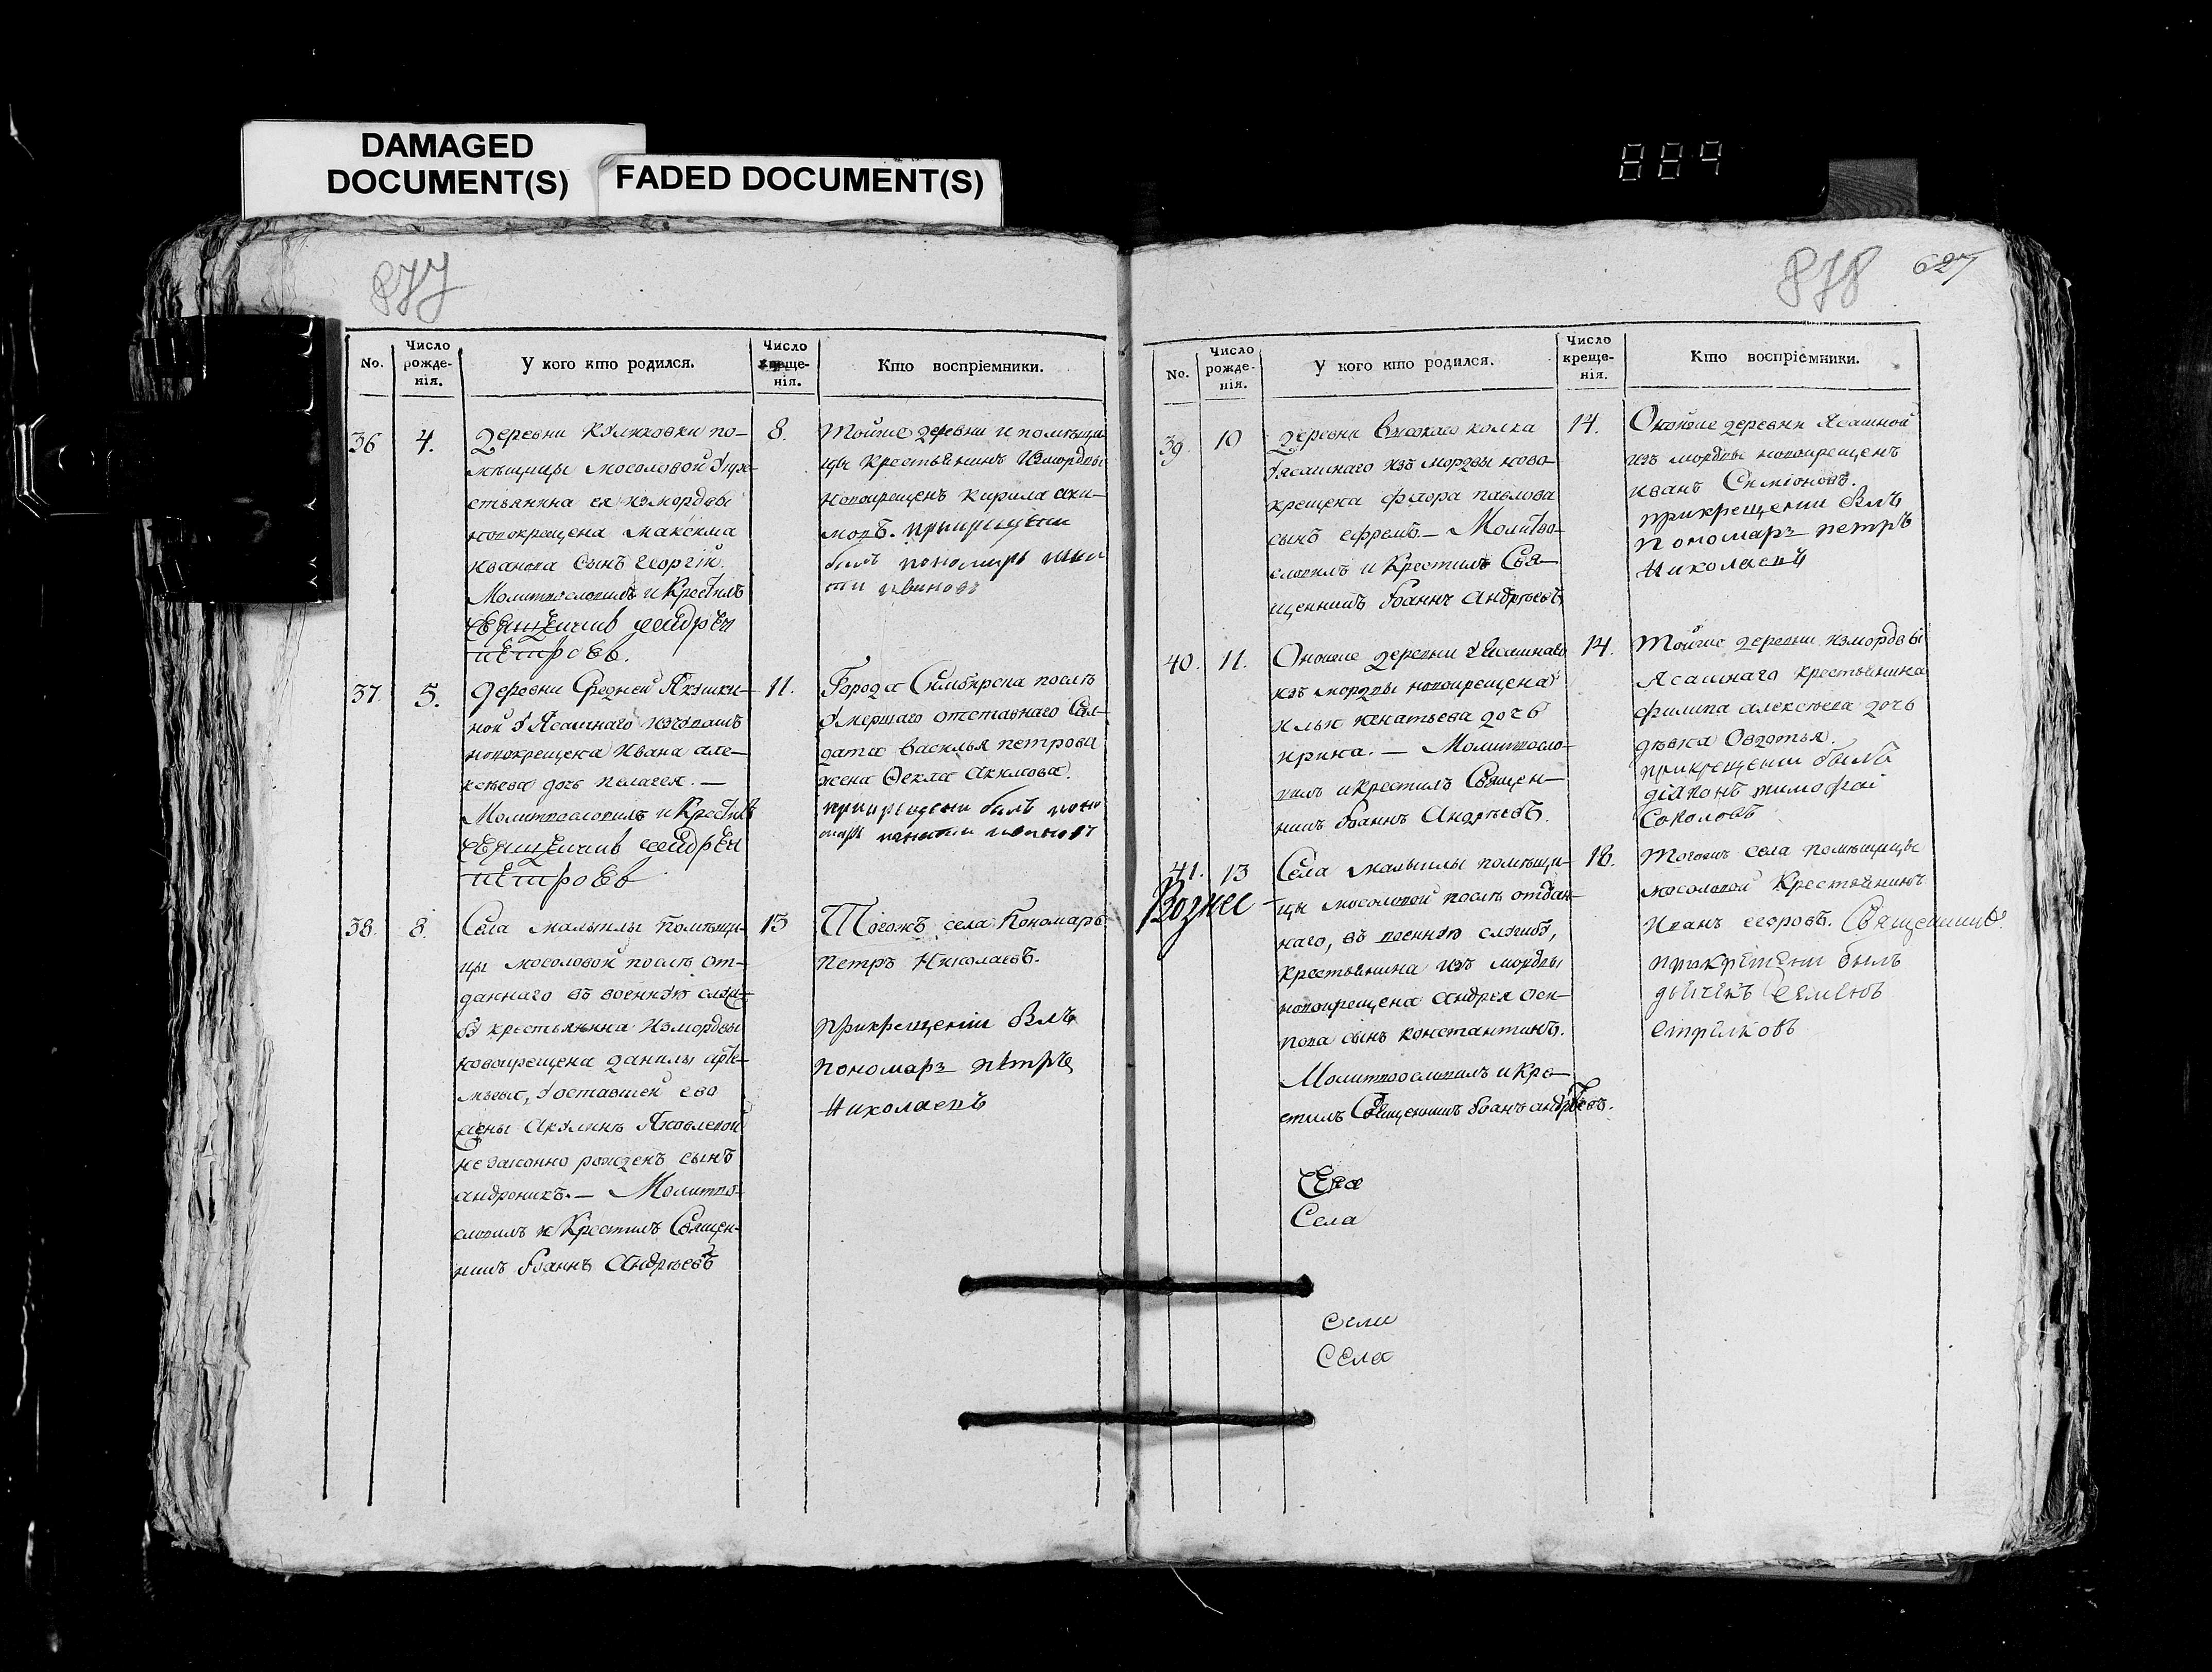 DAMAGED
DOCUMENT(S)
FADED DOCUMENT(S)
889
877
No.
Число
рожде-
нія.
У кого кто родился.
Число
креще-
нія.
Кто воспріемники.
36
4.
Деревни Куликовки по-
мѣщицы Мосоловой у кре-
стьянина ея изъ мордвы
новокрещена Максима
Иванова сынъ Георгій.
Молитвословилъ и Крестилъ
священникъ Андрей
Петровъ.
8.
Тойже деревни и помѣщи-
цы Крестьянинъ изъ мордвы
новокрещенъ Кирила Аки-
мовъ. При крещеніи
былъ пономарь
Ивановъ
37.
5.
Деревни Средней Якушки-
ной у Ясашнаго изъ чувашъ
новокрещена Ивана Але-
ксѣева дочь Пелагея. —
Молитвословилъ и Крестилъ
священникъ Андрей
Петровъ
11.
Города Симбирска послѣ
умершаго отставнаго Сол-
дата Василья Петрова
жена Ѳекла Акимова.
при крещеніи былъ поно
марь Ивановъ
38.
8.
Села Малыклы Помѣщи-
цы Мосоловой послѣ от-
даннаго въ военную служ-
бу крестьянина изъ мордвы
новокрещена Данилы Арте-
мьева, у оставшей ево
жены Акулины Яковлевой
незаконно рожденъ сынъ
Андроникъ. — Молитво-
словилъ и Крестилъ Священ-
никъ Іоаннъ Андреевъ
13
Тогожъ села Пономарь
Петръ Николаевъ.
при крещеніи былъ
пономарь Петръ
Николаевъ
878
627
No.
Число
рожде-
нія.
У кого кто родился.
Число
креще-
нія.
Кто воспріемники.
39.
10
Деревни Высокаго колка
у ясашнаго изъ мордвы ново-
крещена Флора Павлова
сынъ Ефремъ. — Молитво-
словилъ и Крестилъ Свя-
щенникъ Іоаннъ Андреевъ
14.
Оной же деревни Ясашной
изъ мордвы новокрещенъ
Иванъ Симіоновъ.
при крещеніи былъ
пономарь Петръ
Николаевъ
40.
11.
Оной же деревни у Ясашнаго
изъ мордвы новокрещена
Ильи Игнатьева дочь
Ирина. — Молитвосло-
вилъ и крестилъ Священ-
никъ Іоаннъ Андреевъ.
14.
Тойже деревни изъ мордвы
Ясашнаго крестьянина
Филипа Алексѣева дочь
дѣвка Овдотья.
при крещеніи былъ
діаконъ Тимофей
Соколовъ
41.
13
Вознес —
Села Малыклы помѣщи-
цы Мосоловой послѣ отдан-
наго, въ военную службу,
крестьянина изъ мордвы
новокрещена Андрея Оси-
пова сынъ Константинъ.
Молитвословилъ и Кре-
стилъ Священникъ Іоанъ Андреевъ.
18.
Тогожъ села помѣщицы
Мосоловой Крестьянинъ
Иванъ Егоровъ. Священникъ
при крещеніи былъ
дьячекъ Семенъ
Стрелковъ
Села
Села
сели
села